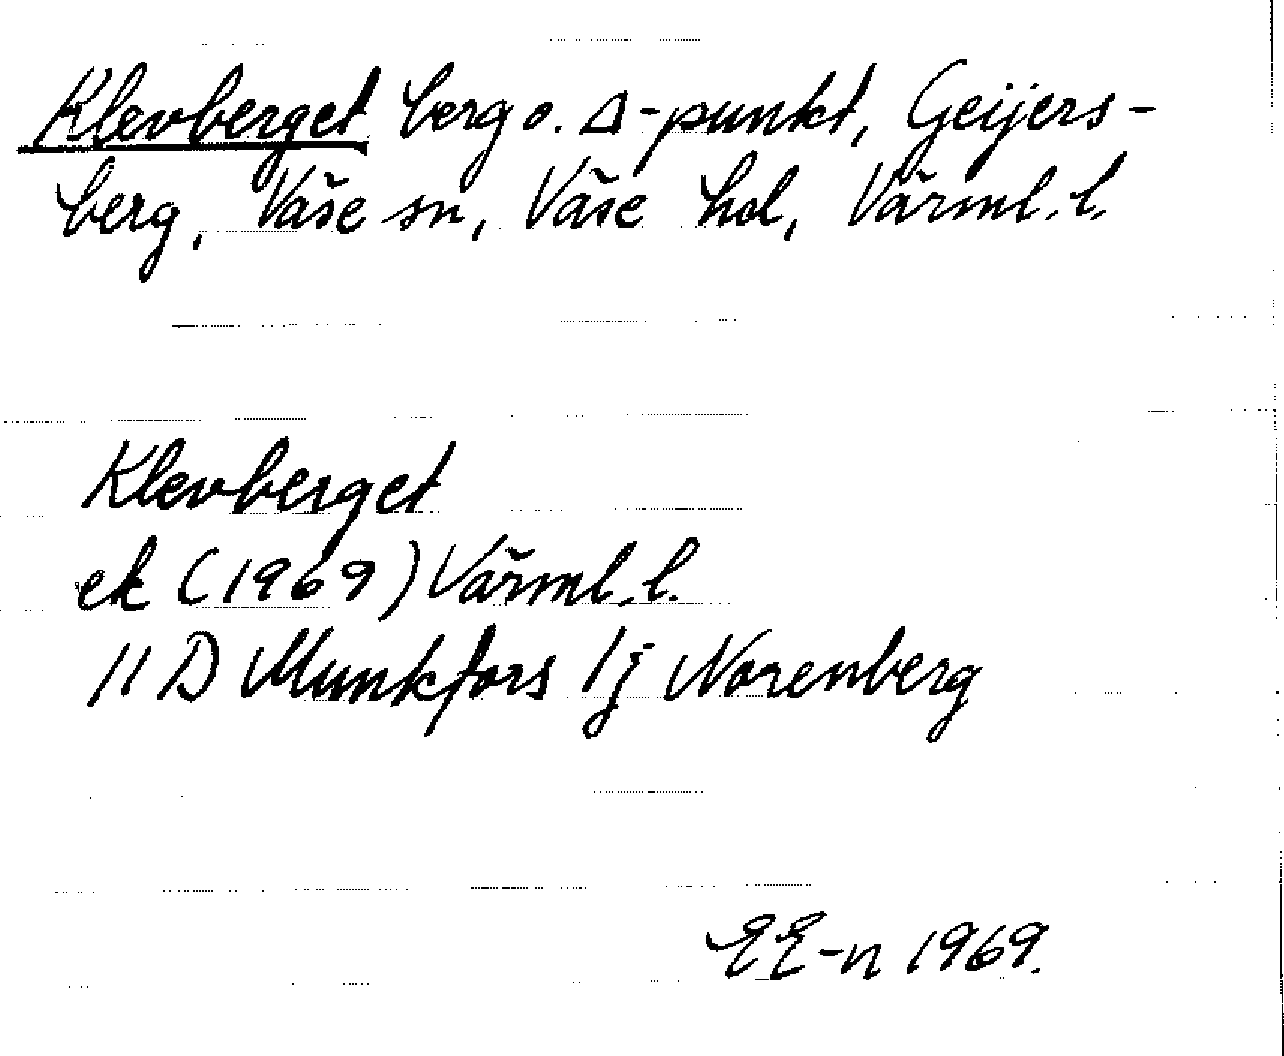 Klevberget berg o. Δ-punkt, Geijers-
berg, Väse sn, Väse hd, Värml. l.
Klevberget
ek (1969) Värml. l.
11 D Munkfors 1j Norenberg
EE-n 1969.